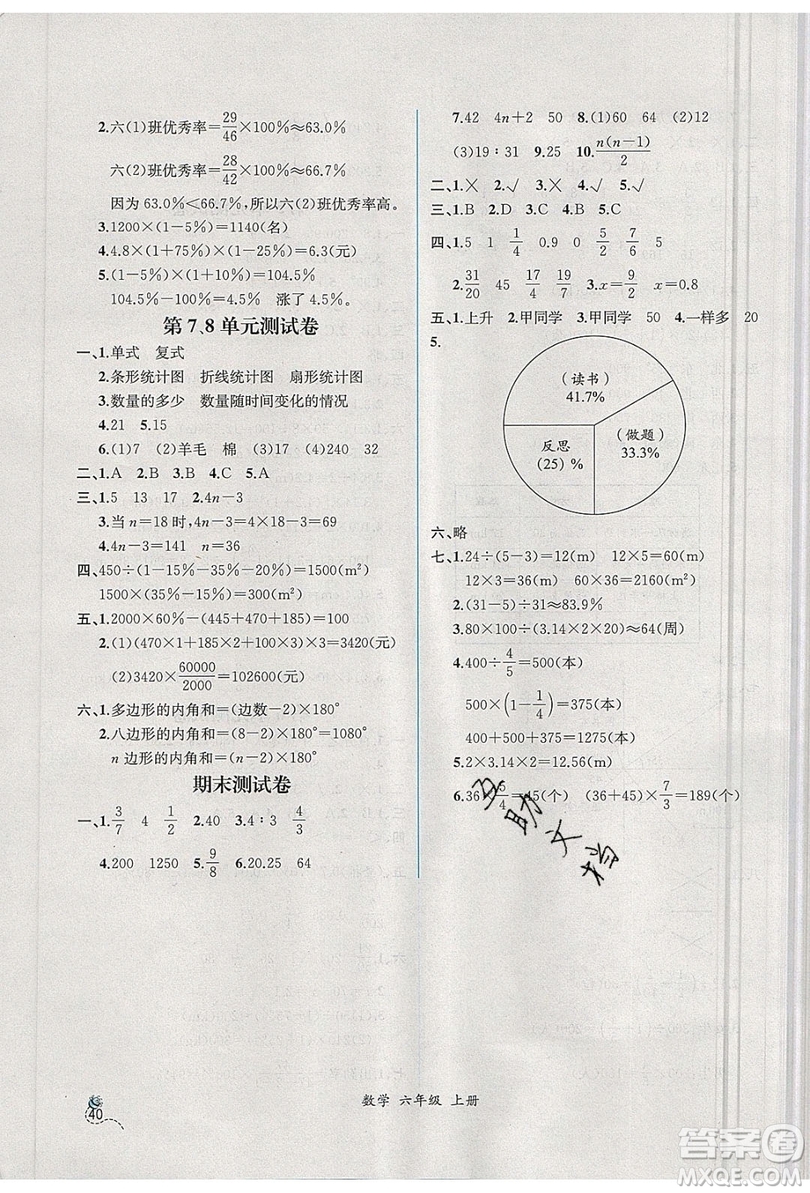 2.六(1)班优秀率=29/46×100%≈63.0%
六(2)班优秀率=28/42×100%≈66.7%
因为 63.0%<66.7%,所以六(2)班优秀率高。
3.1200×(1-5%)=1140(名)
4.4.8×(1+75%)×(1-25%)=6.3(元)
5.(1-5%)×(1+10%)=104.5%
104.5%-100%=4.5% 涨了 4.5%。
第 7、8 单元测试卷
一、1.单式 复式
2.条形统计图 折线统计图 扇形统计图
3.数量的多少 数量随时间变化的情况
4.21 5.15
6.(1)7 (2)羊毛 棉 (3)17 (4)240 32
二、1.A 2.B 3.B 4.C 5.A
三、1.5 13 17 2.4n-3
3.当 n=18 时,4n-3=4×18-3=69
4.4n-3=141 n=36
四、450÷(1-35%-20%-15%)=1500(m²)
1500×(35%-15%)=300(m²)
五、1.2000×60%-(445+470+185)=100
2.(1)(470×1+185×2+100×3)×3=3420(元)
(2)3420×60000/2000=102600(元)
六、1.多边形的内角和=(边数-2)×180°
2.八边形的内角和=(8-2)×180°=1080°
n 边形的内角和=(n-2)×180°
期末测试卷
一、1.3/7 4 1/2 2.40 3.4∶3 4/3
4.200 1250 5.9/8 6.20.25 64
7.42 4n+2 50 8.(1)60 64 (2)12
(3)19∶31 9.25 10.n(n-1)/2
二、1.× 2.√ 3.× 4.√ 5.√
三、1.B 2.D 3.C 4.B 5.C
四、1.5 1 1/4 0.9 0 5/2 7/6 5
2.31/20 45 17/4 4/19 3.x=9/2 x=0.8
五、1.上升 2.甲同学 3.甲同学 50 4.一样多 20
5.
(读书)
41.7%
反思
(25)%
(做题)
33.3%
六、略
七、1.24÷(5-3)=12(m) 12×5=60(m)
12×3=36(m) 60×36=2160(m²)
2.(31-5)÷31≈83.9%
3.80×100÷(3.14×2×20)≈64(周)
4.400÷4/5=500(本)
500×(1-1/4)=375(本)
400+500+375=1275(本)
5.2×3.14×2=12.56(m)
6.36×5/4=45(个) (36+45)×7/3=189(个)
互助文档
数学 六年级 上册
40
答案圈
MXQE.COM